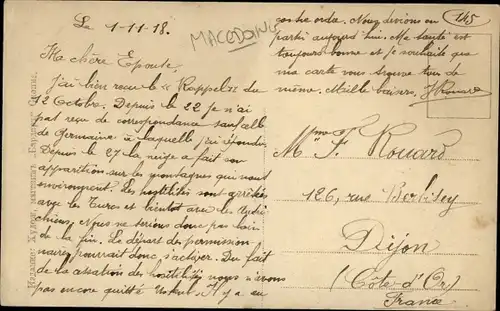 Le 1-11-18.
MACEDOINE
145
Ma chère Epouse,
J'ai bien recu le "Rappel" du
12 Octobre. Depuis le 22 je n'ai
pas reçu de correspondance sauf celle
de Germaine à laquelle j'ai répondu
Depuis le 27 la neige a fait son
apparition sur les montagnes qui nous
environnent. Les hostilités sont arrêtées
avec les Turcs et bientôt avec les Autri
chiens, Nous ne serions donc pas loin
de la fin. Le départ des permission
naires pourrait donc s'activer. Du fait
de la cessation des hostilités nous n'avons
pas encore quitté Uskub. Il y a eu
contre ordre. Nous devions en
partir aujourd'hui. Ma santé est
toujours bonne et je souhaite que
ma carte vous trouve tous de
même. Mille baisers. F Rouard
Mme F. Rouard
126, rue Berbisey
Dijon
(Côte-d'Or)
France